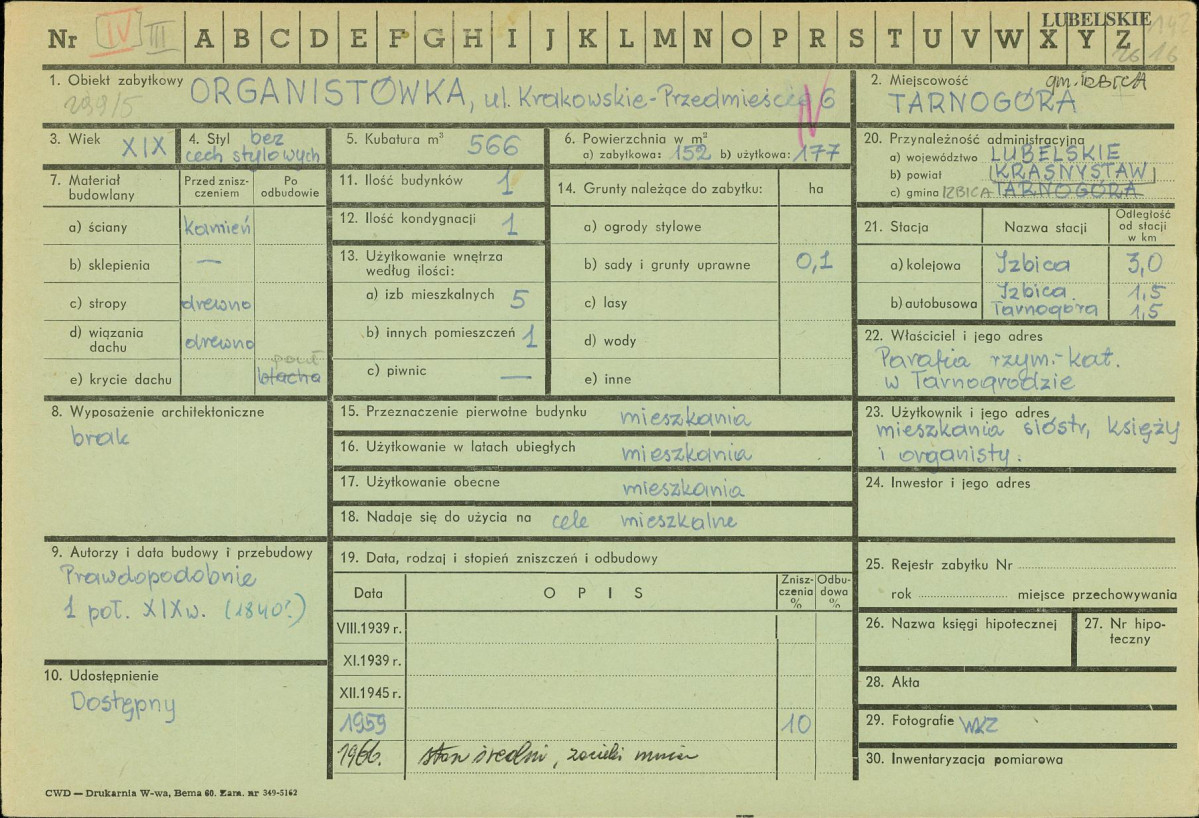 LUBELSKIE
Nr IV III A B C D E F G H I J K L M N O P R S T U V W X Y Z
1. Obiekt zabytkowy ORGANISTÓWKA, ul. Krakowskie-Przedmieście 6
239/5
IV
2. Miejscowość gm. IZBICA
TARNOGÓRA
3. Wiek XIX
4. Styl bez
cech stylowych
5. Kubatura m³ 566
6. Powierzchnia w m²
a) zabytkowa: 152 b) użytkowa: 177
20. Przynależność administracyjna
a) województwo LUBELSKIE
b) powiat KRASNYSTAW
c) gmina IZBICA TARNOGÓRA
7. Materiał
budowlany
Przed znisz-
czeniem
Po
odbudowie
a) ściany kamień
b) sklepienia —
c) stropy drewno
d) wiązania
dachu drewno
e) krycie dachu blacha
11. Ilość budynków 1
12. Ilość kondygnacji 1
13. Użytkowanie wnętrza
według ilości:
a) izb mieszkalnych 5
b) innych pomieszczeń 1
c) piwnic —
14. Grunty należące do zabytku: ha
a) ogrody stylowe
b) sady i grunty uprawne 0,1
c) lasy
d) wody
e) inne
21. Stacja Nazwa stacji
Odległość
od stacji
w km
a) kolejowa Izbica 3,0
Izbica 1,5
b) autobusowa Tarnogóra 1,5
22. Właściciel i jego adres
Parafia rzym.-kat.
w Tarnogrodzie
8. Wyposażenie architektoniczne
brak
15. Przeznaczenie pierwotne budynku mieszkania
16. Użytkowanie w latach ubiegłych mieszkania
17. Użytkowanie obecne mieszkania
18. Nadaje się do użycia na cele mieszkalne
23. Użytkownik i jego adres
mieszkania sióstr, księży
i organisty.
24. Inwestor i jego adres
9. Autorzy i data budowy i przebudowy
Prawdopodobnie
1 poł. XIX w. (1840?)
10. Udostępnienie
Dostępny
19. Data, rodzaj i stopień zniszczeń i odbudowy
Data OPIS
Znisz-
czenia
%
Odbu-
dowa
%
VIII.1939 r.
XI.1939 r.
XII.1945 r.
1959 10
1966. stan średni, zacieki
25. Rejestr zabytku Nr
rok miejsce przechowywania
26. Nazwa księgi hipotecznej
27. Nr hipo-
teczny
28. Akta
29. Fotografie WKZ
30. Inwentaryzacja pomiarowa
CWD — Drukarnia W-wa, Bema 60. Zam. nr 349-5162